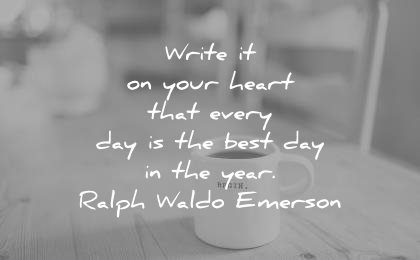 Write it
on your heart
that every
day is the best day
in the year.
BEGIN.
Ralph Waldo Emerson